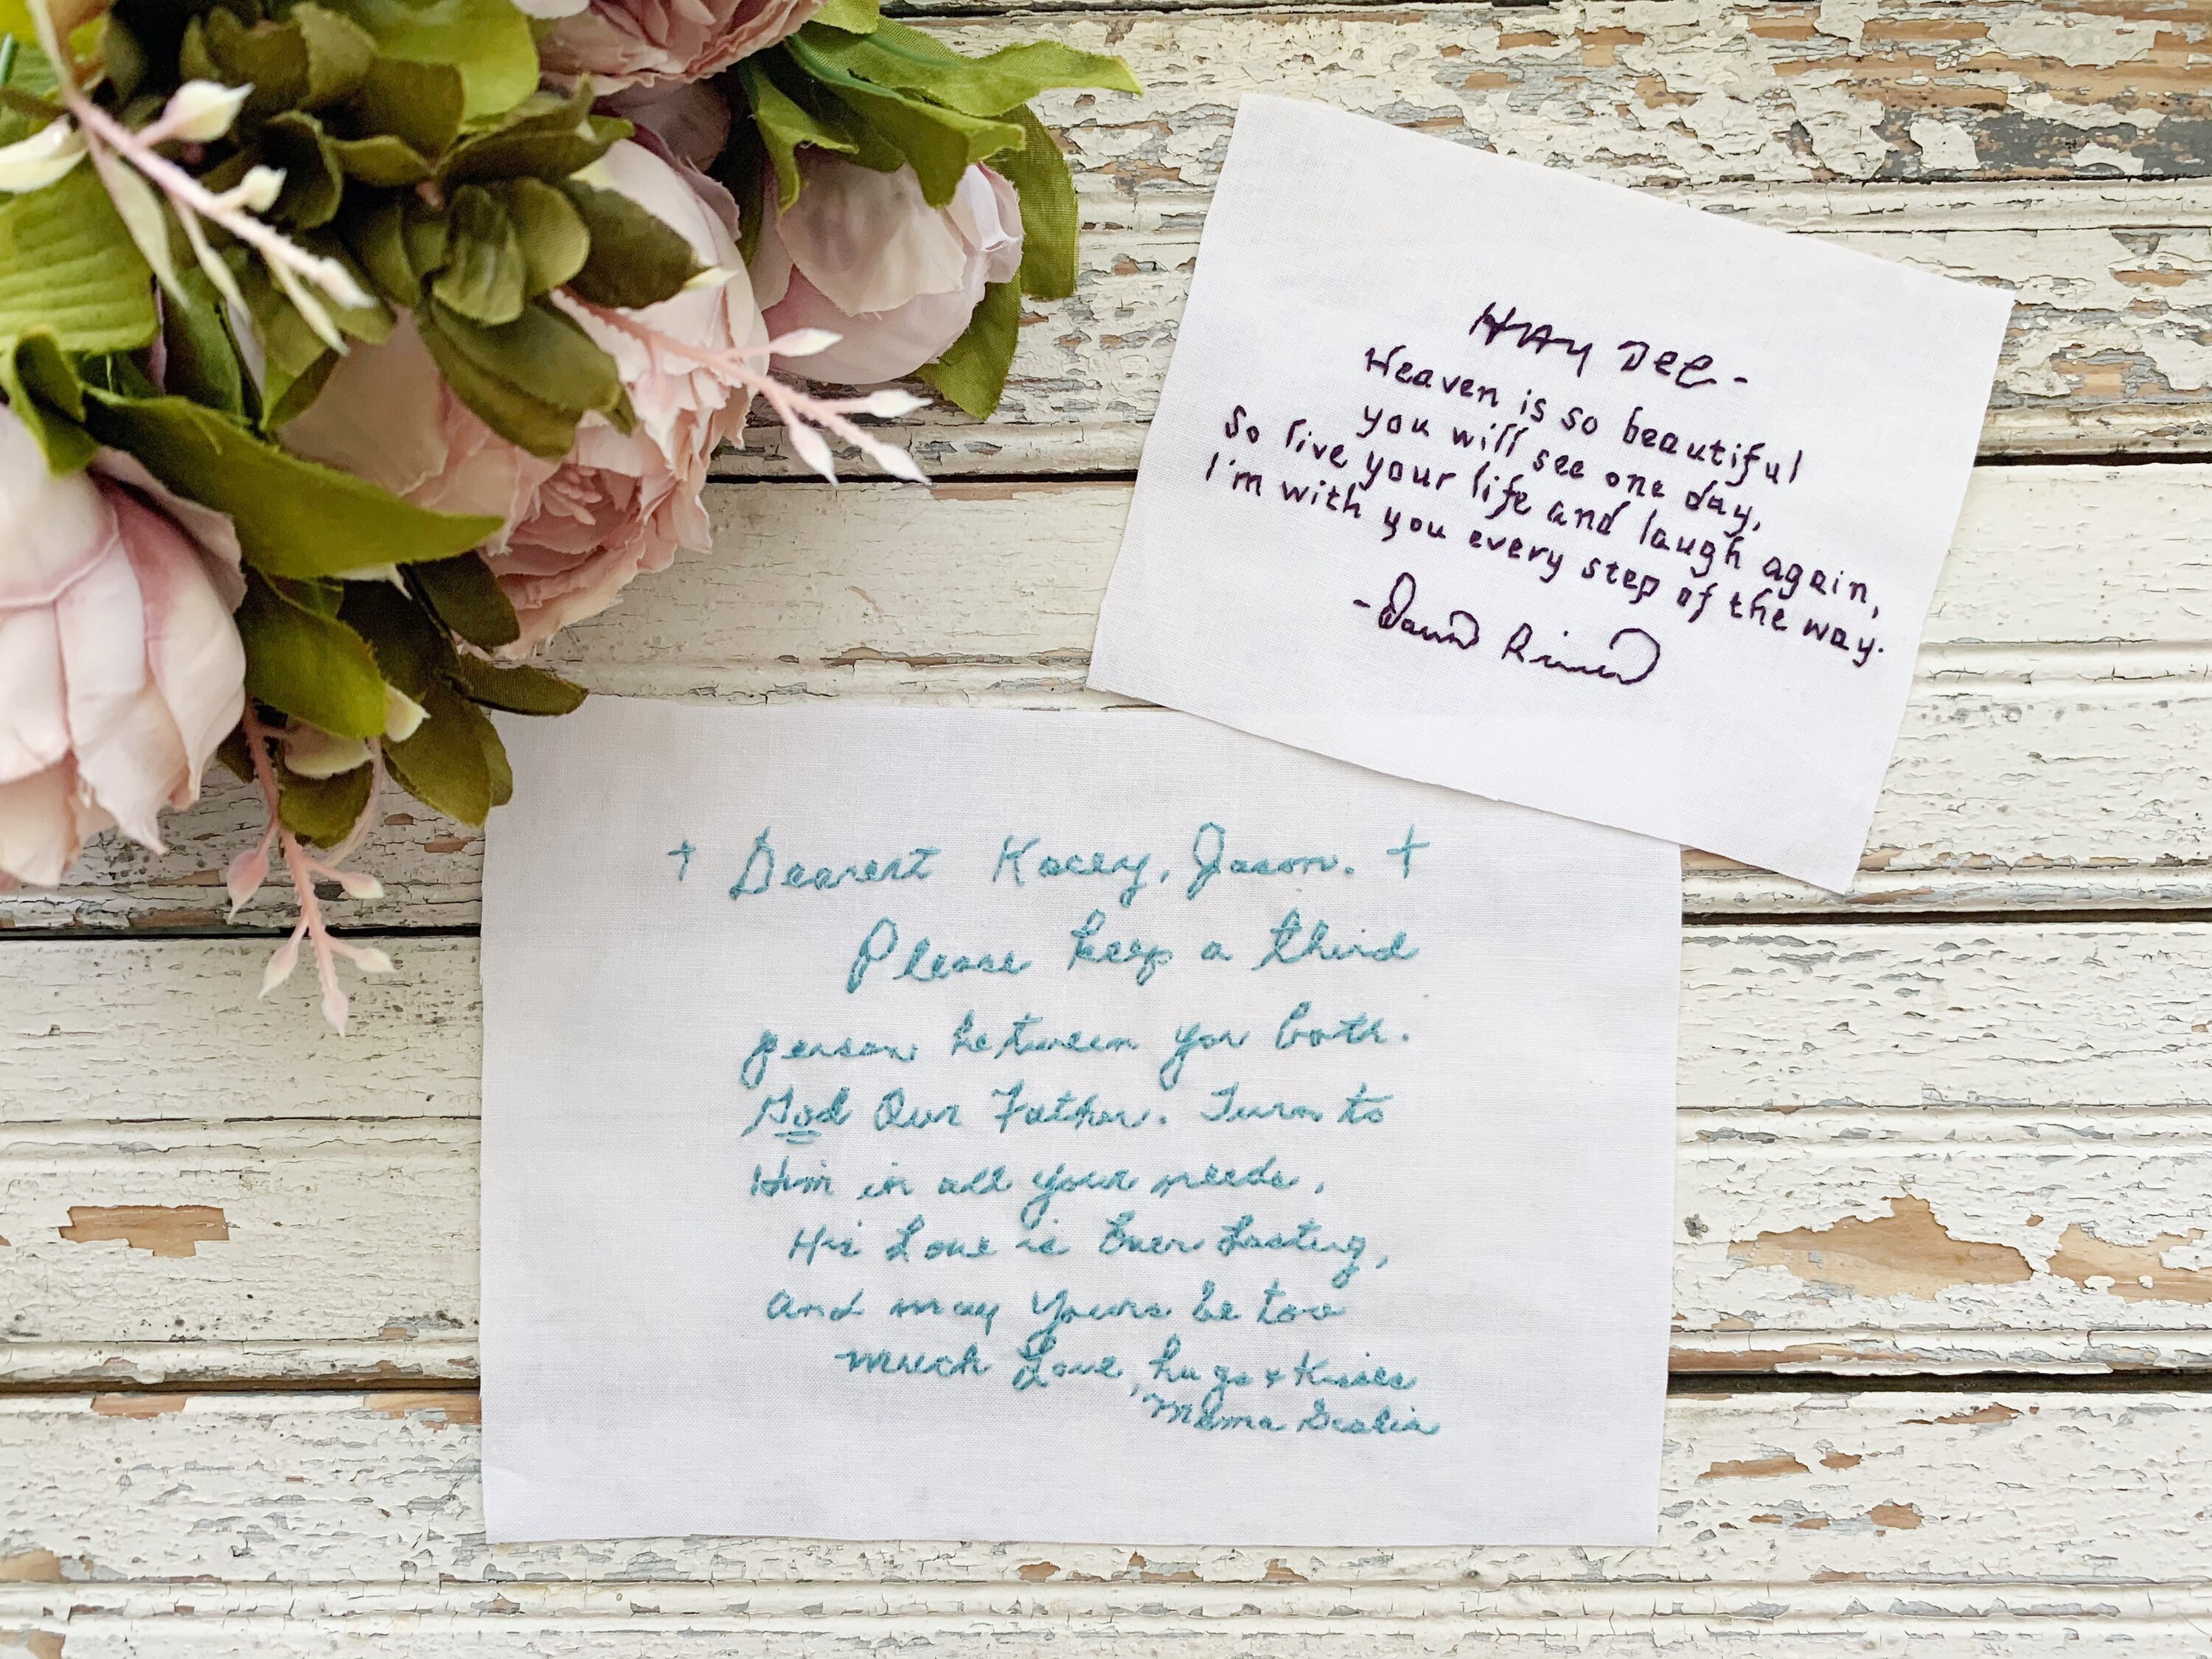 HAY DEE -
Heaven is so beautiful
you will see one day,
So live your life and laugh again,
I'm with you every step of the way.
- David
† Dearest Kacey, Jason. †
Please keep a third
person between you both.
God Our Father. Turn to
Him in all your needs,
His Love is Ever Lasting,
And may Yours be too
Much Love, hugs & Kisses
Mama